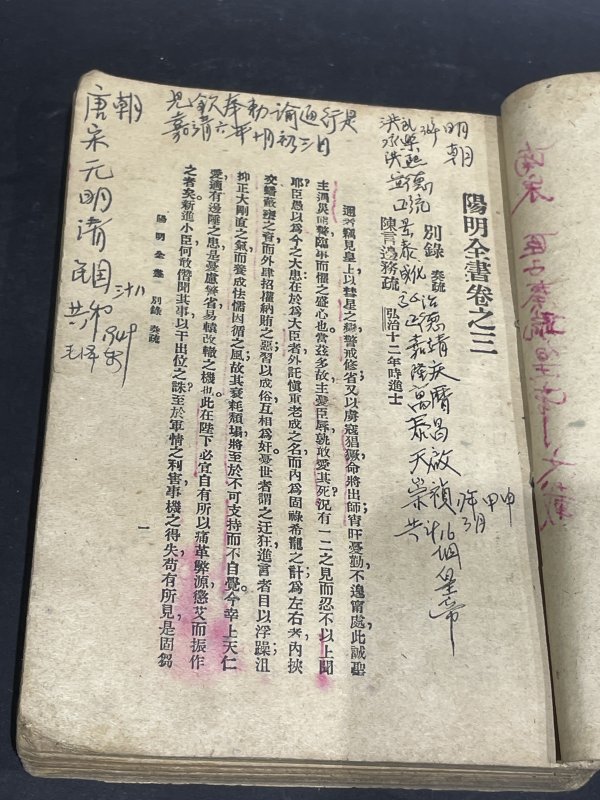 陽明全書卷之三
別錄 奏疏
陳言邊務疏 弘治十二年時進士
邇者竊見皇上以彗星之變警戒修省又以虜寇猖獗命將出師宵旰憂勤不遑甯處此誠聖
主遇災能警臨事而懼之盛心也當茲多故主憂臣辱孰敢愛其死況有一二之見而忍不以上聞
耶臣愚以為今之大患在於為大臣者外託慎重老成之名而內為固祿希寵之計為左右者內挾
交蟠蔽壅之資而外肆招權納賄之惡習以成俗互相為奸憂世者謂之迂狂進言者目以浮躁沮
抑正大剛直之氣而養成怯懦因循之風故其衰耗頹塌將至於不可支持而不自覺今幸上天仁
愛適有邊陲之患是憂慮警省易轅改轍之機也此在陛下必宜自有所以痛革弊源懲艾而振作
之者矣新進小臣何敢僭聞其事以干出位之誅至於軍情之利害事機之得失苟有所見是固芻
陽明全書 別錄 奏疏
一
明朝
16個皇帝
甲申
3月
欽奉勅諭通行
嘉靖六年十月初三日
唐朝
宋元明清
民國 三十八
共和 1949